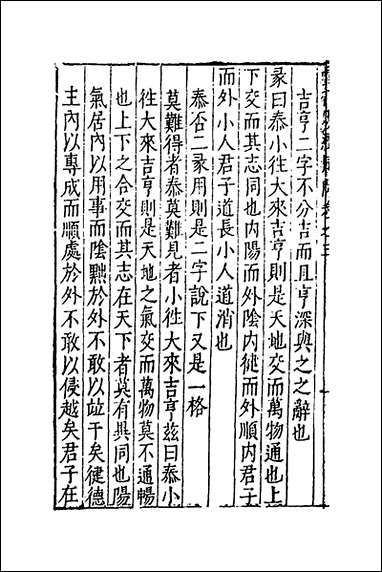 吉亨二字不分吉而且亨深與之之辭也
彖曰泰小徃大來吉亨則是天地交而萬物通也上
下交而其志同也内陽而外陰内徤而外順内君子
而外小人君子道長小人道消也
泰否二彖用則是二字說下又是一格
莫難得者泰莫難見者小徃大來吉亨兹曰泰小
徃大來吉亨則是天地之氣交而萬物莫不通暢
也上下之合交而其志在天下者莫有異同也陽
氣居内以用事而陰黜於外不敢以
干矣徤德
主内以專成而順處於外不敢以侵越矣君子在